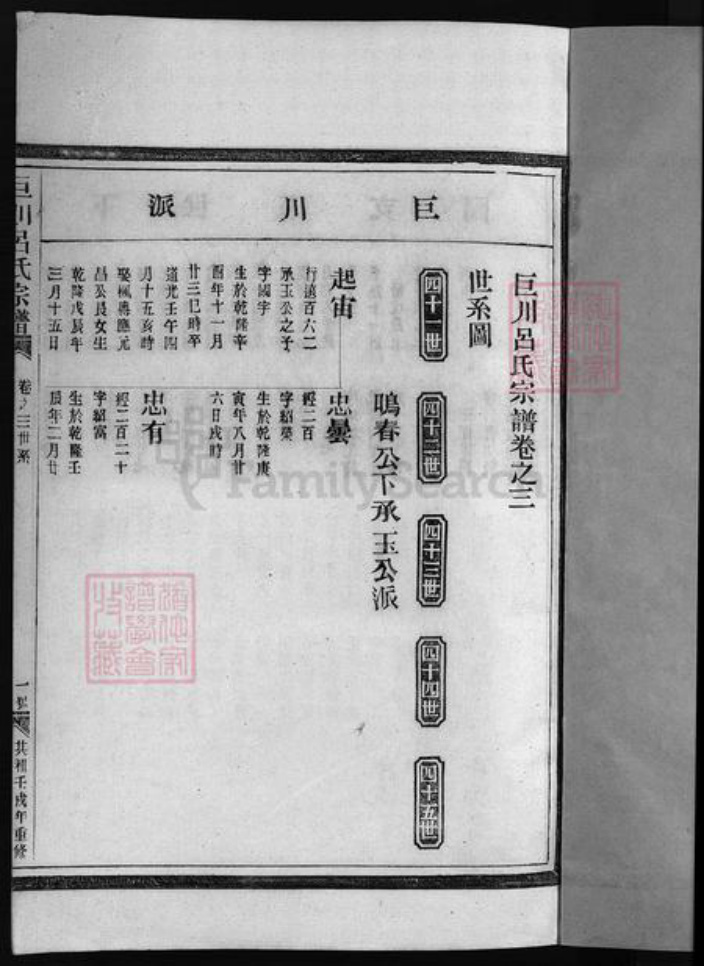 巨川派
巨川呂氏宗譜卷之三
世系圖
四十一世
四十二世
四十三世
四十四世
四十五世
鳴春公下承玉公派
起宙
行遠百六二
承玉公之子
字國宇
生於乾隆辛
酉年十一月
廿三巳時卒
道光壬午四
月十五亥時
娶楓橋應元
昌公長女生
乾隆戊辰年
三月十五日
忠曇
經二百
字紹榮
生於乾隆庚
寅年八月廿
六日戌時
忠有
經二百二十
字紹富
生於乾隆壬
辰年二月廿
巨川呂氏宗譜
卷之三世系
一
共和壬戌年重修
FamilySearch